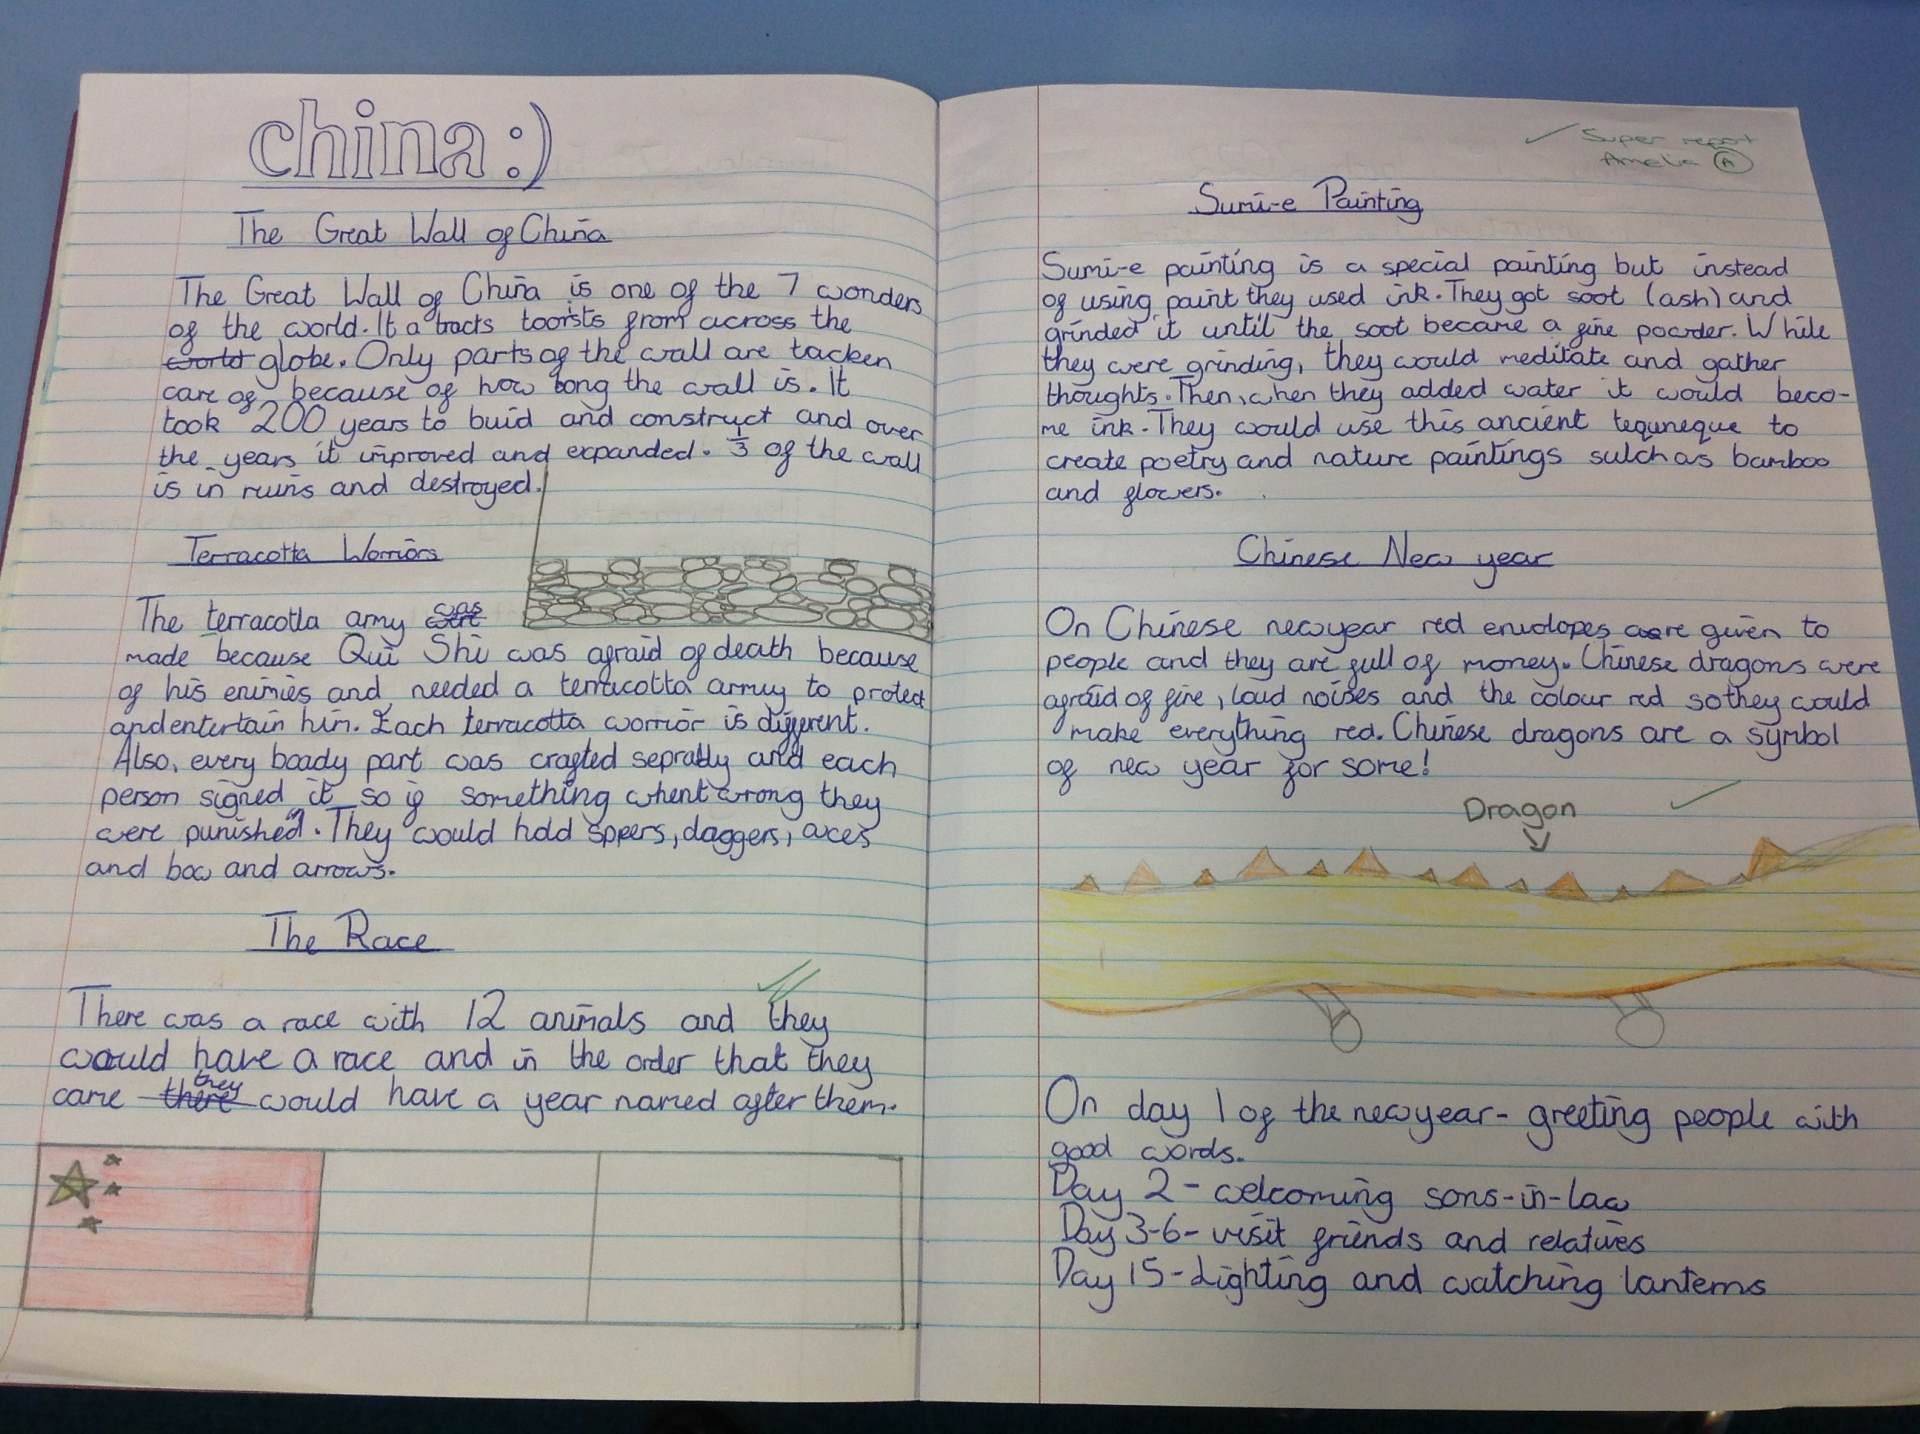 china:)
The Great Wall of China
The Great Wall of China is one of the 7 wonders
of the world. It a tracts toorsts from across the
world globe. Only parts of the wall are tacken
care of, because of how long the wall is. It
took 200 years to buid and construct and over
the years it improved and expanded. 1/3 of the wall
is in ruins and destroyed.
Terracotta Worriors
The terracotta army were was
made because Qui Shi was afraid of death because
of his enimies and needed a terracotta army to protect
and entertain him. Each terracotta worrior is different.
Also, every boady part was crafted sepratly and each
person signed it so if something whent wrong they
were punished. They would hold speers, daggers, axes
and bow and arrows.
The Race
There was a race with 12 animals and they
would have a race and in the order that they
came there they would have a year named after them.
Super report
Amelia A
Sumi-e Painting
Sumi-e painting is a special painting but instead
of using paint they used ink. They got soot (ash) and
grinded it until the soot became a fine powder. While
they were grinding, they would meditate and gather
thoughts. Then, when they added water it would beco-
me ink. They would use this ancient tequneque to
create poetry and nature paintings sutch as bamboo
and flowers.
Chinese New year
On Chinese new year red envolopes are given to
people and they are full of money. Chinese dragons were
afraid of fire, loud noises and the colour red so they would
make everything red. Chinese dragons are a symbol
of new year for some!
Dragon
On day 1 of the new year- greeting people with
good words.
Day 2 - welcoming sons-in-law
Day 3-6- visit friends and relatives
Day 15- Lighting and watching lanterns